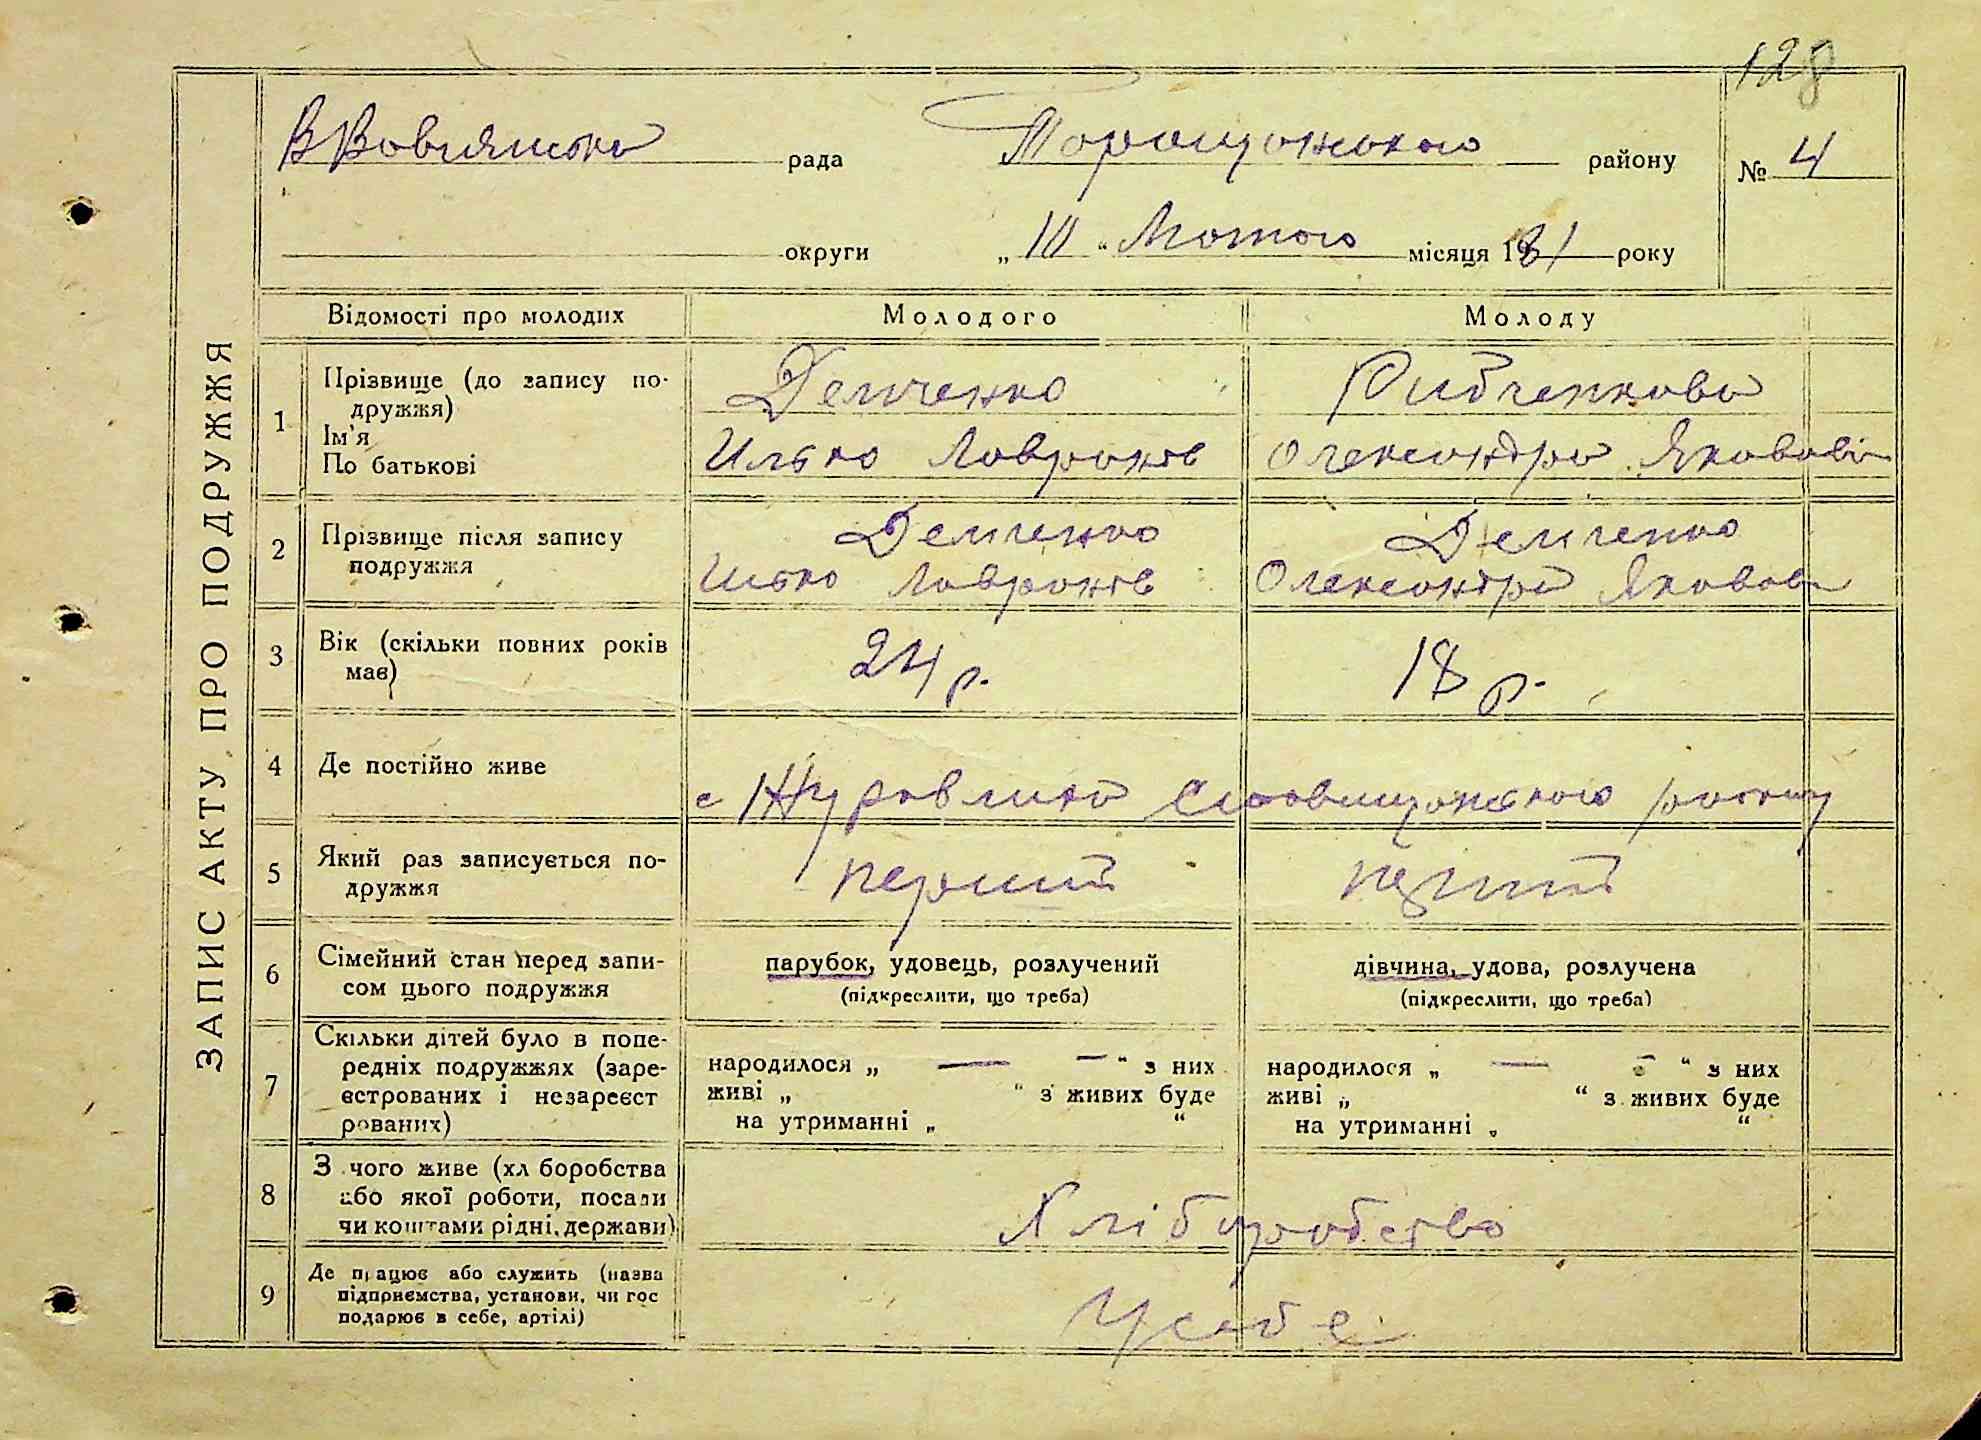 128
ЗАПИС АКТУ ПРО ПОДРУЖЖЯ
В Вовнянська рада Таращанського району № 4
округи „ 10 “ Лютого місяця 1931 року
Відомості про молодих Молодого Молоду
1 Прізвище (до запису подружжя) Демченко Рибченкова
Ім'я
По батькові Илько Лавронів Олександра Яковові
2 Прізвище після запису Демченко Демченко
подружжя Илько Лавронів Олександра Яковов
3 Вік (скільки повних років 24 р. 18 р.
має)
4 Де постійно живе с Журавлиха Ставищанського району
5 Який раз записується по- перший перший
дружжя
6 Сімейний стан перед запи- парубок, удовець, розлучений дівчина, удова, розлучена
сом цього подружжя (підкреслити, що треба) (підкреслити, що треба)
7 Скільки дітей було в попе-
редніх подружжях (заре- народилося „ — — “ з них народилося „ — — “ з них
єстрованих і незареєст живі „ “ з живих буде живі „ “ з живих буде
рованих) на утриманні „ “ на утриманні „ “
8 З чого живе (хл боробства
або якої роботи, посади Хліборобство
чи коштами рідні, держави)
9 Де працює або служить (назва
підприємства, установи, чи гос Усебе
подарює в себе, артілі)